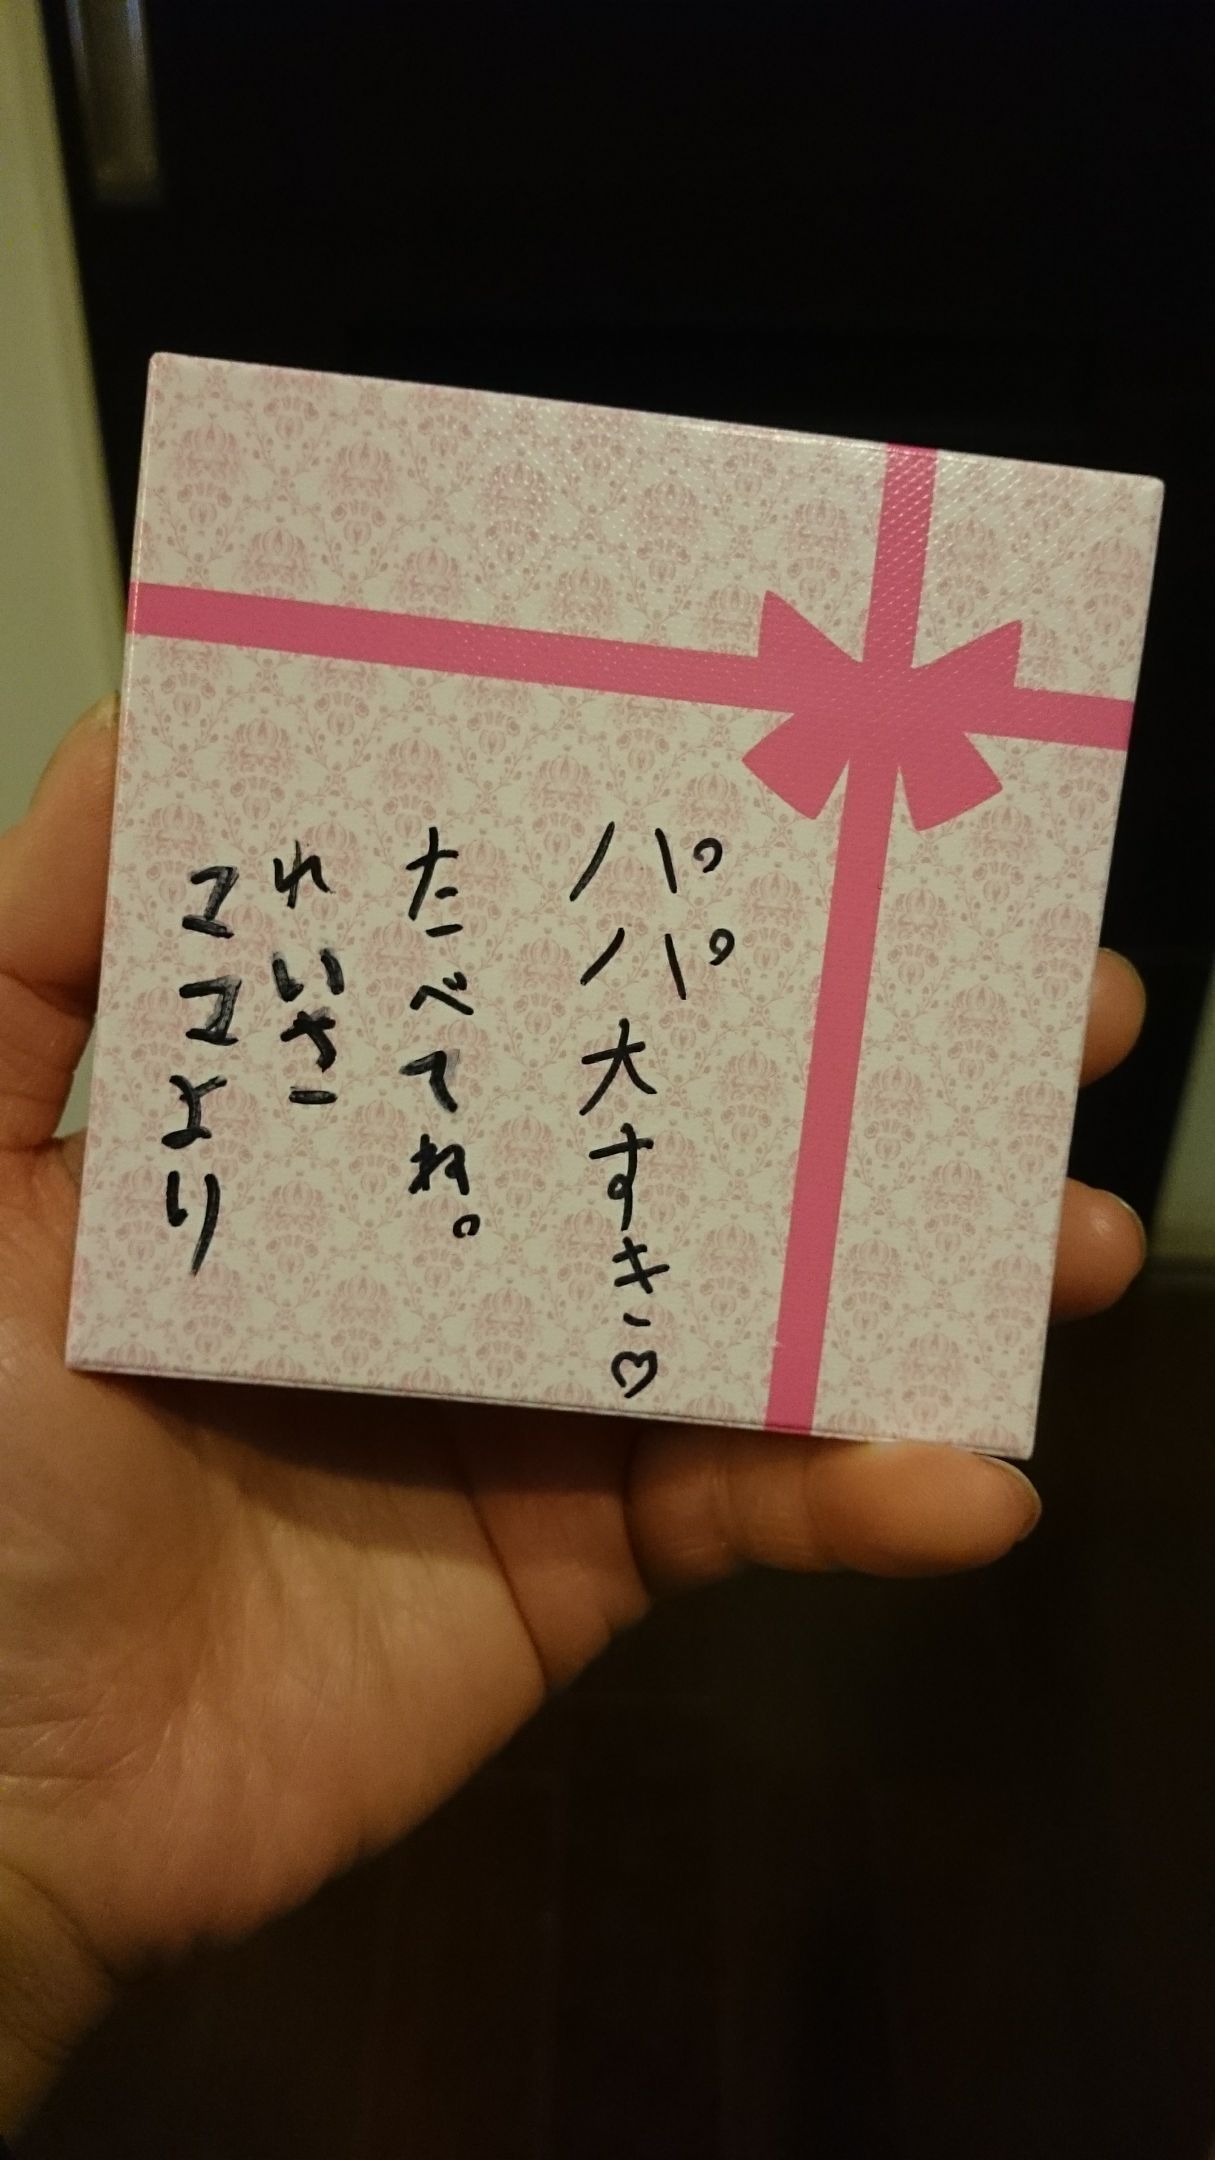 パパ大すき♡
たべてね。
れいさ
ママより